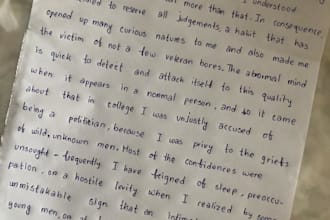 more than that. In consequence
to reserve all judgements, a habit that has
opened up many curious natures to me and also made me
the victim of not a few veteran bores. The abnormal mind
is quick to detect and attack itself to this quality
when it appears in a normal person, and so it came
about that in college I was unjustly accused of
being a politician, because I was privy to the griefs
of wild, unknown men. Most of the confidences were
unsought - frequently I have feigned of sleep, preoccu-
pation, on a hostile levity when I realized by some
unmistakable sign that an
young men, on